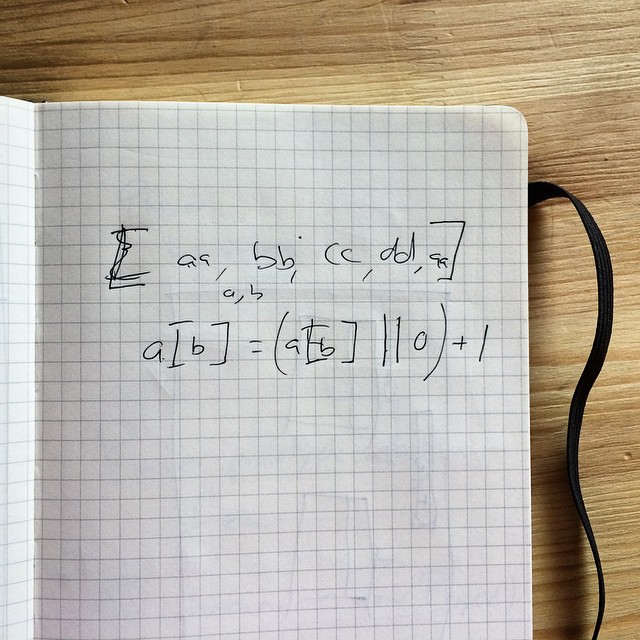 [ aa, bb, cc, dd, aa]
a,b
a[b] = (a[b] || 0) + 1